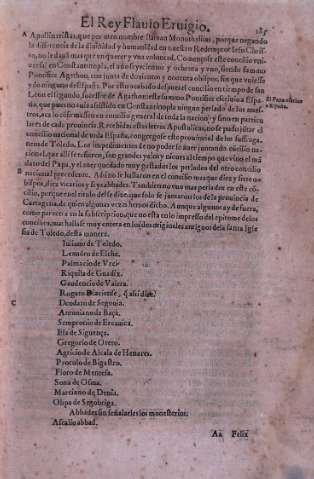 El Rey Flauio Eruigio.
185
A Apollinaristas, que por otro nombre llaman Monothelitas, porque negando
la diferencia de la diuinidad y humanidad en nuestro Redemptor Iesu Chris-
to, no le daua mas que vn querer y vna voluntad. Començose este concilio vni-
uersal en Constantinopla, el año seyscientos y ochenta y vno, siendo summo
Pontifice Agathon, con junta de dozientos y ochenta obispos, sin que vuiesse
do ninguno de España. Por esto acabado despues el concilio en tiempo de san
Leon el segundo, sucessor de Agathon: este summo Pontifice escriuio a Espa-
El Papa escriue
a España.
ña, que pues no auia assistido en Constantinopla ningun perlado de los nues-
tros, aca se en concilio general de toda la nacion, y sino en particu
lares de cada prouincia. Recebidas estas letras Apostolicas, no se pudo juntar el
concilio nacional de toda España, congregose este prouincial de los suffraga-
neos de Toledo. Los impedimentos de no poderse auer juntando concilio na-
cional, que alli se refieren, son grandes yelos y nieues al tiempo que vino el má
dato del Papa, y el auer quedado muy gastados los perlados del otro concilio
B nacional precedente. Assi se hallaron en el concilio no mas que diez y siete o-
bispos, diez vicarios y seys abades. Tambien no vuo mas perlados en este có-
cilio, porque en el titulo del se dize, que solo se juntaron los de la prouincia de
Cartagena, de quien algunas vezes hemos dicho. Aunque algunos ay de fuera,
como parecera en la subscripcion, que no esta en lo impresso del epitome de los
concilios, mas hallase muy entera en los dos originales antiguos de la santa Igle
sia de Toledo, desta manera.
Iuliano de Toledo.
Leandro de Elche.
Palmacio de Vrci.
Riquila de Guadix.
Gaudencio de Valera.
Rogato Beaciense, q̃ assi dize.
C Deodato de Segouia.
Antoniano de Baça.
Sempronio de Ercauica.
Ela de Siguença.
Gregorio de Oreto.
Agricio de Alcala de Henares.
Proculo de Bigastro.
Floro de Mentesa.
Sona de Osma.
Marciano de Denia.
Olipa de Segobriga.
Abbades sin señalarles los monesterios.
Ascalio abbad.
Aa Felix